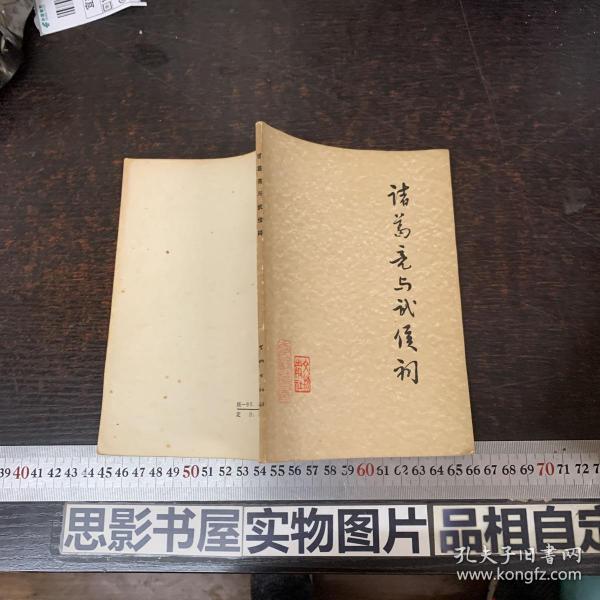 诸葛亮与武侯祠
诸葛亮与武侯祠
文物
出版社
统一书
定价
39 40 41 42 43 44 45 46 47 48 49 50 51 52 53 54 55 56 57 58 59 60 61 62 63 64 65 66 67 68 69 70 71 72 73
思影书屋 实物图片 品相自定
孔夫子旧书网
www.kongfz.com